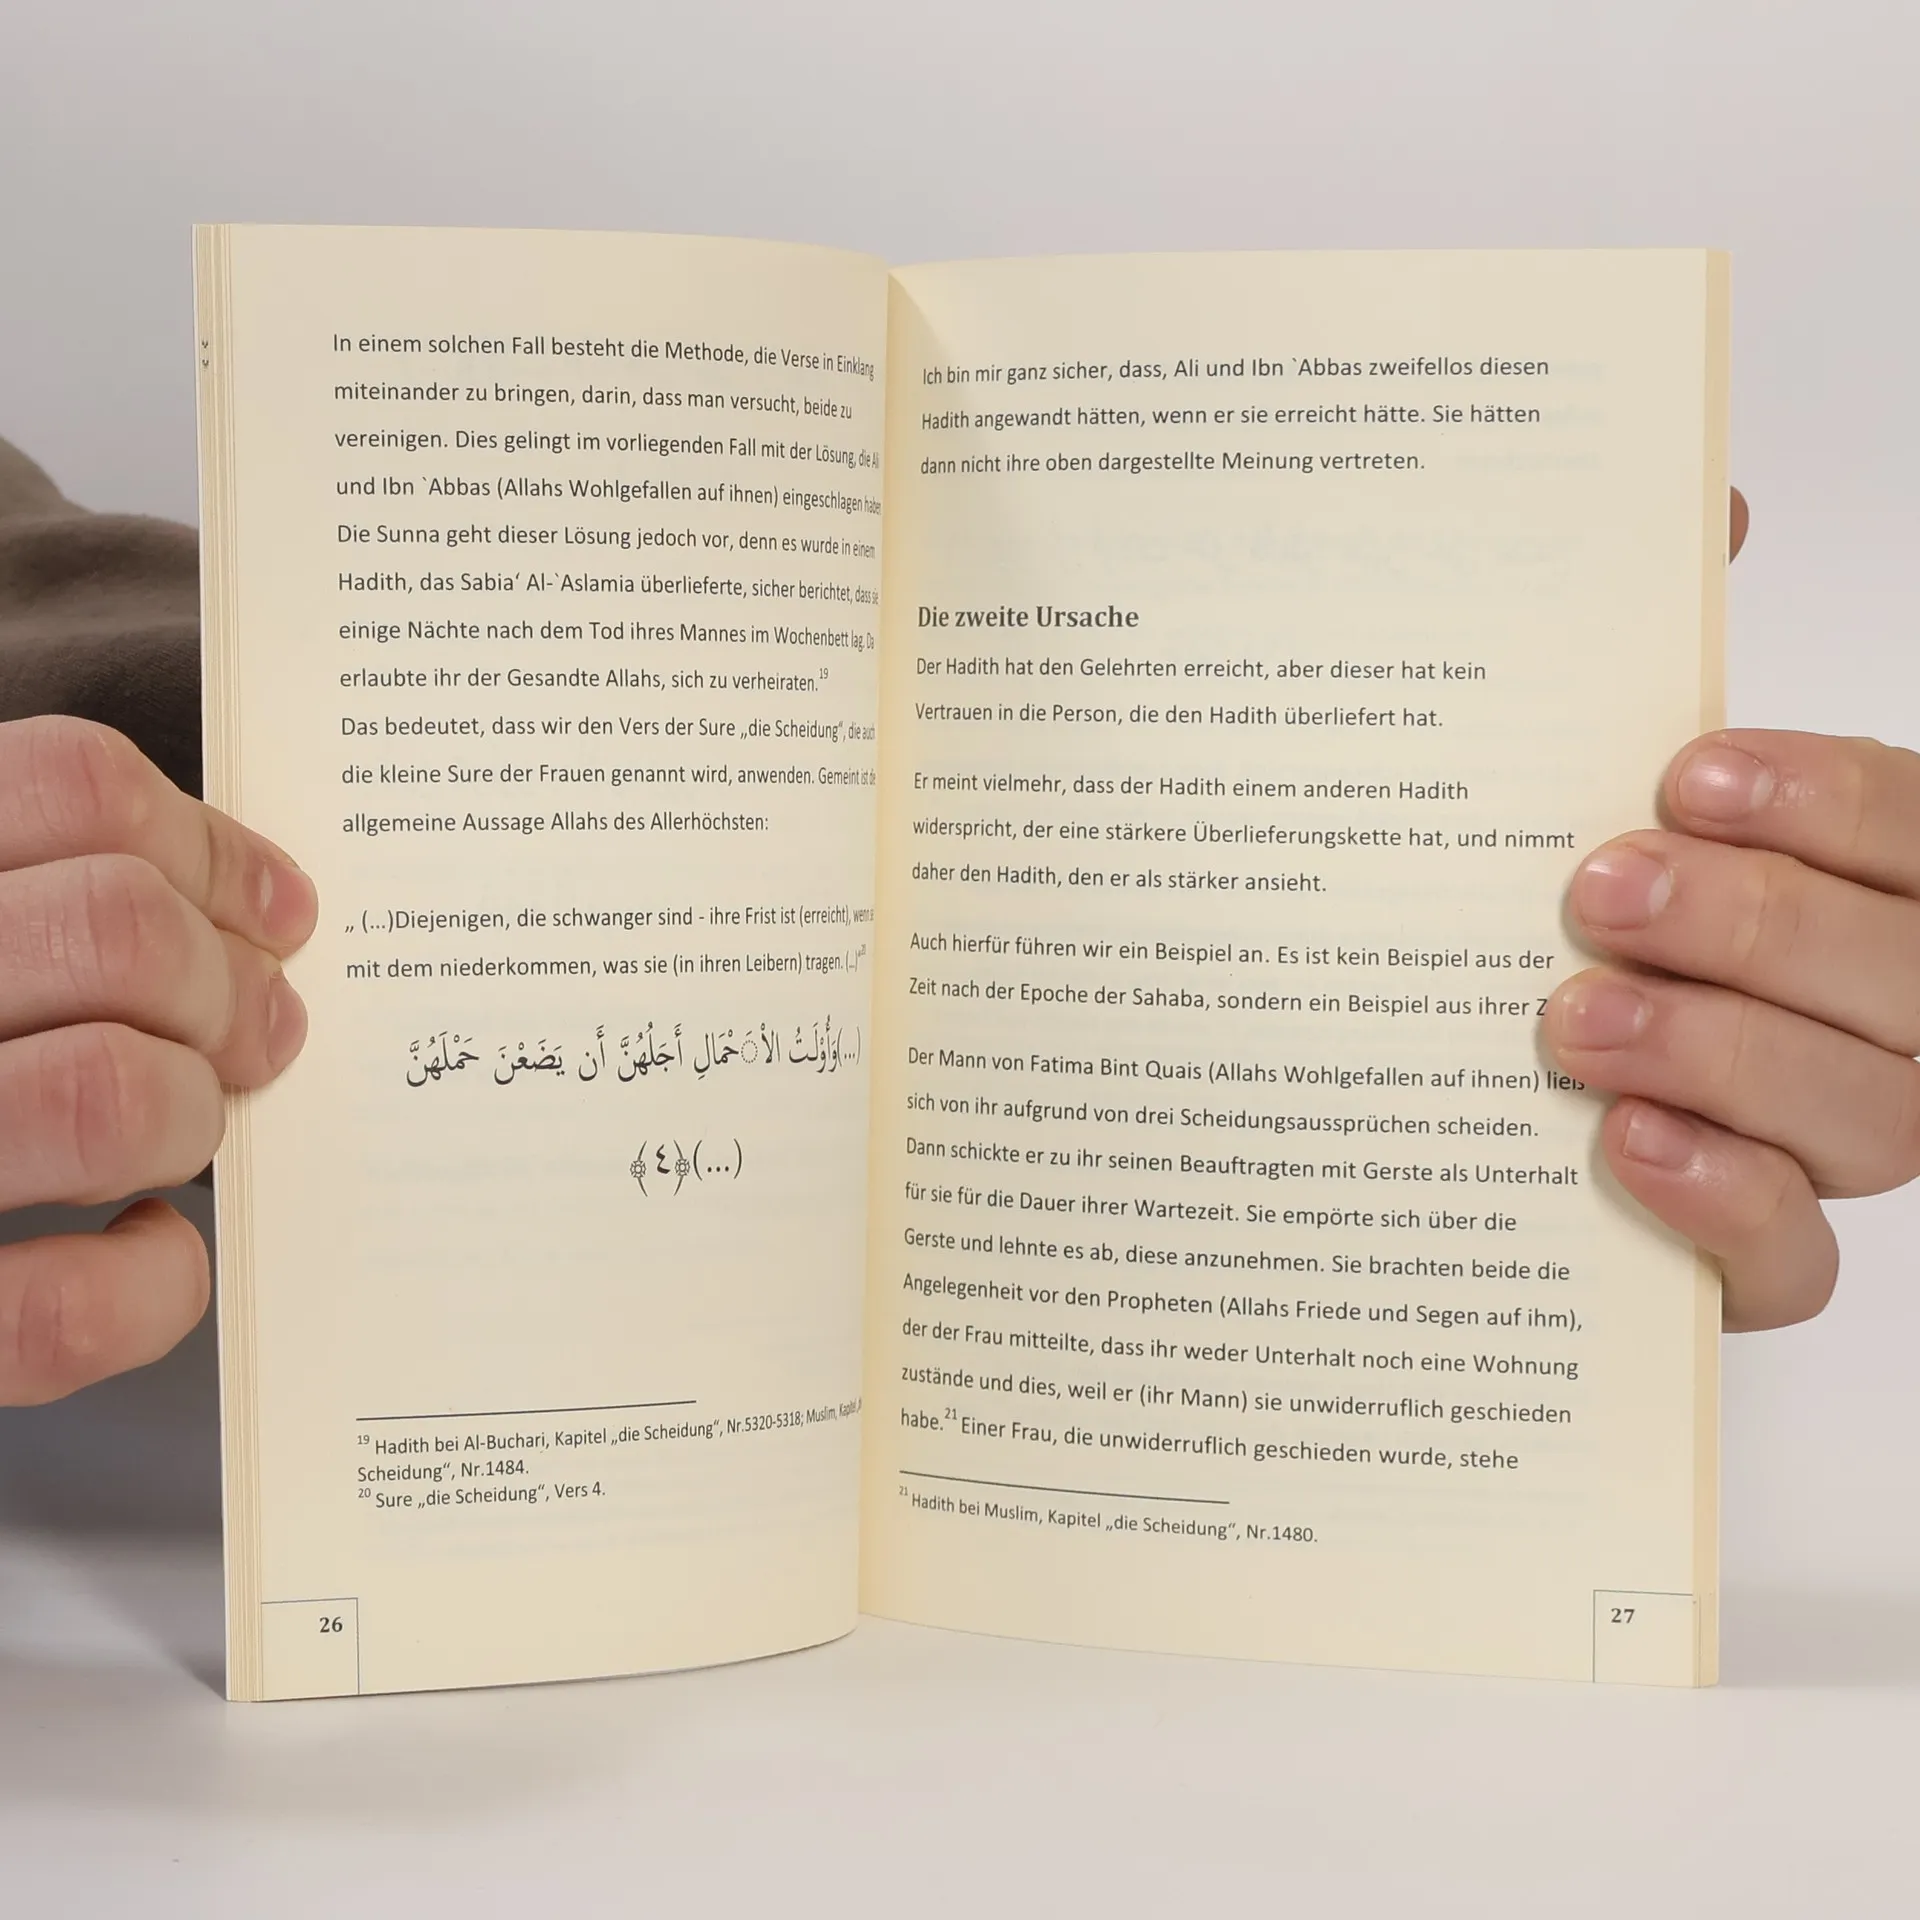 In einem solchen Fall besteht die Methode, die Verse in Einklang
miteinander zu bringen, darin, dass man versucht, beide zu
vereinigen. Dies gelingt im vorliegenden Fall mit der Lösung, die Ali
und Ibn `Abbas (Allahs Wohlgefallen auf ihnen) eingeschlagen haben
Die Sunna geht dieser Lösung jedoch vor, denn es wurde in einem
Hadith, das Sabia‘ Al-`Aslamia überlieferte, sicher berichtet, dass sie
einige Nächte nach dem Tod ihres Mannes im Wochenbett lag. Da
erlaubte ihr der Gesandte Allahs, sich zu verheiraten.19
Das bedeutet, dass wir den Vers der Sure „die Scheidung“, die auch
die kleine Sure der Frauen genannt wird, anwenden. Gemeint ist die
allgemeine Aussage Allahs des Allerhöchsten:
„ (...)Diejenigen, die schwanger sind - ihre Frist ist (erreicht), wenn
mit dem niederkommen, was sie (in ihren Leibern) tragen. (...)“20
(...)وَأُوْلَـتُ الأَحْمَالِ أَجَلُهُنَّ أَن يَضَعْنَ حَمْلَهُنَّ
(...)﴿٤﴾
19 Hadith bei Al-Buchari, Kapitel „die Scheidung“, Nr.5320-5318; Muslim, Kapitel
Scheidung“, Nr.1484.
20 Sure „die Scheidung“, Vers 4.
26
Ich bin mir ganz sicher, dass, Ali und Ibn `Abbas zweifellos diesen
Hadith angewandt hätten, wenn er sie erreicht hätte. Sie hätten
dann nicht ihre oben dargestellte Meinung vertreten.
Die zweite Ursache
Der Hadith hat den Gelehrten erreicht, aber dieser hat kein
Vertrauen in die Person, die den Hadith überliefert hat.
Er meint vielmehr, dass der Hadith einem anderen Hadith
widerspricht, der eine stärkere Überlieferungskette hat, und nimmt
daher den Hadith, den er als stärker ansieht.
Auch hierfür führen wir ein Beispiel an. Es ist kein Beispiel aus der
Zeit nach der Epoche der Sahaba, sondern ein Beispiel aus ihrer
Der Mann von Fatima Bint Quais (Allahs Wohlgefallen auf ihnen) ließ
sich von ihr aufgrund von drei Scheidungsaussprüchen scheiden.
Dann schickte er zu ihr seinen Beauftragten mit Gerste als Unterhalt
für sie für die Dauer ihrer Wartezeit. Sie empörte sich über die
Gerste und lehnte es ab, diese anzunehmen. Sie brachten beide die
Angelegenheit vor den Propheten (Allahs Friede und Segen auf ihm),
der der Frau mitteilte, dass ihr weder Unterhalt noch eine Wohnung
zustände und dies, weil er (ihr Mann) sie unwiderruflich geschieden
habe.21 Einer Frau, die unwiderruflich geschieden wurde, stehe
21 Hadith bei Muslim, Kapitel „die Scheidung“, Nr.1480.
27